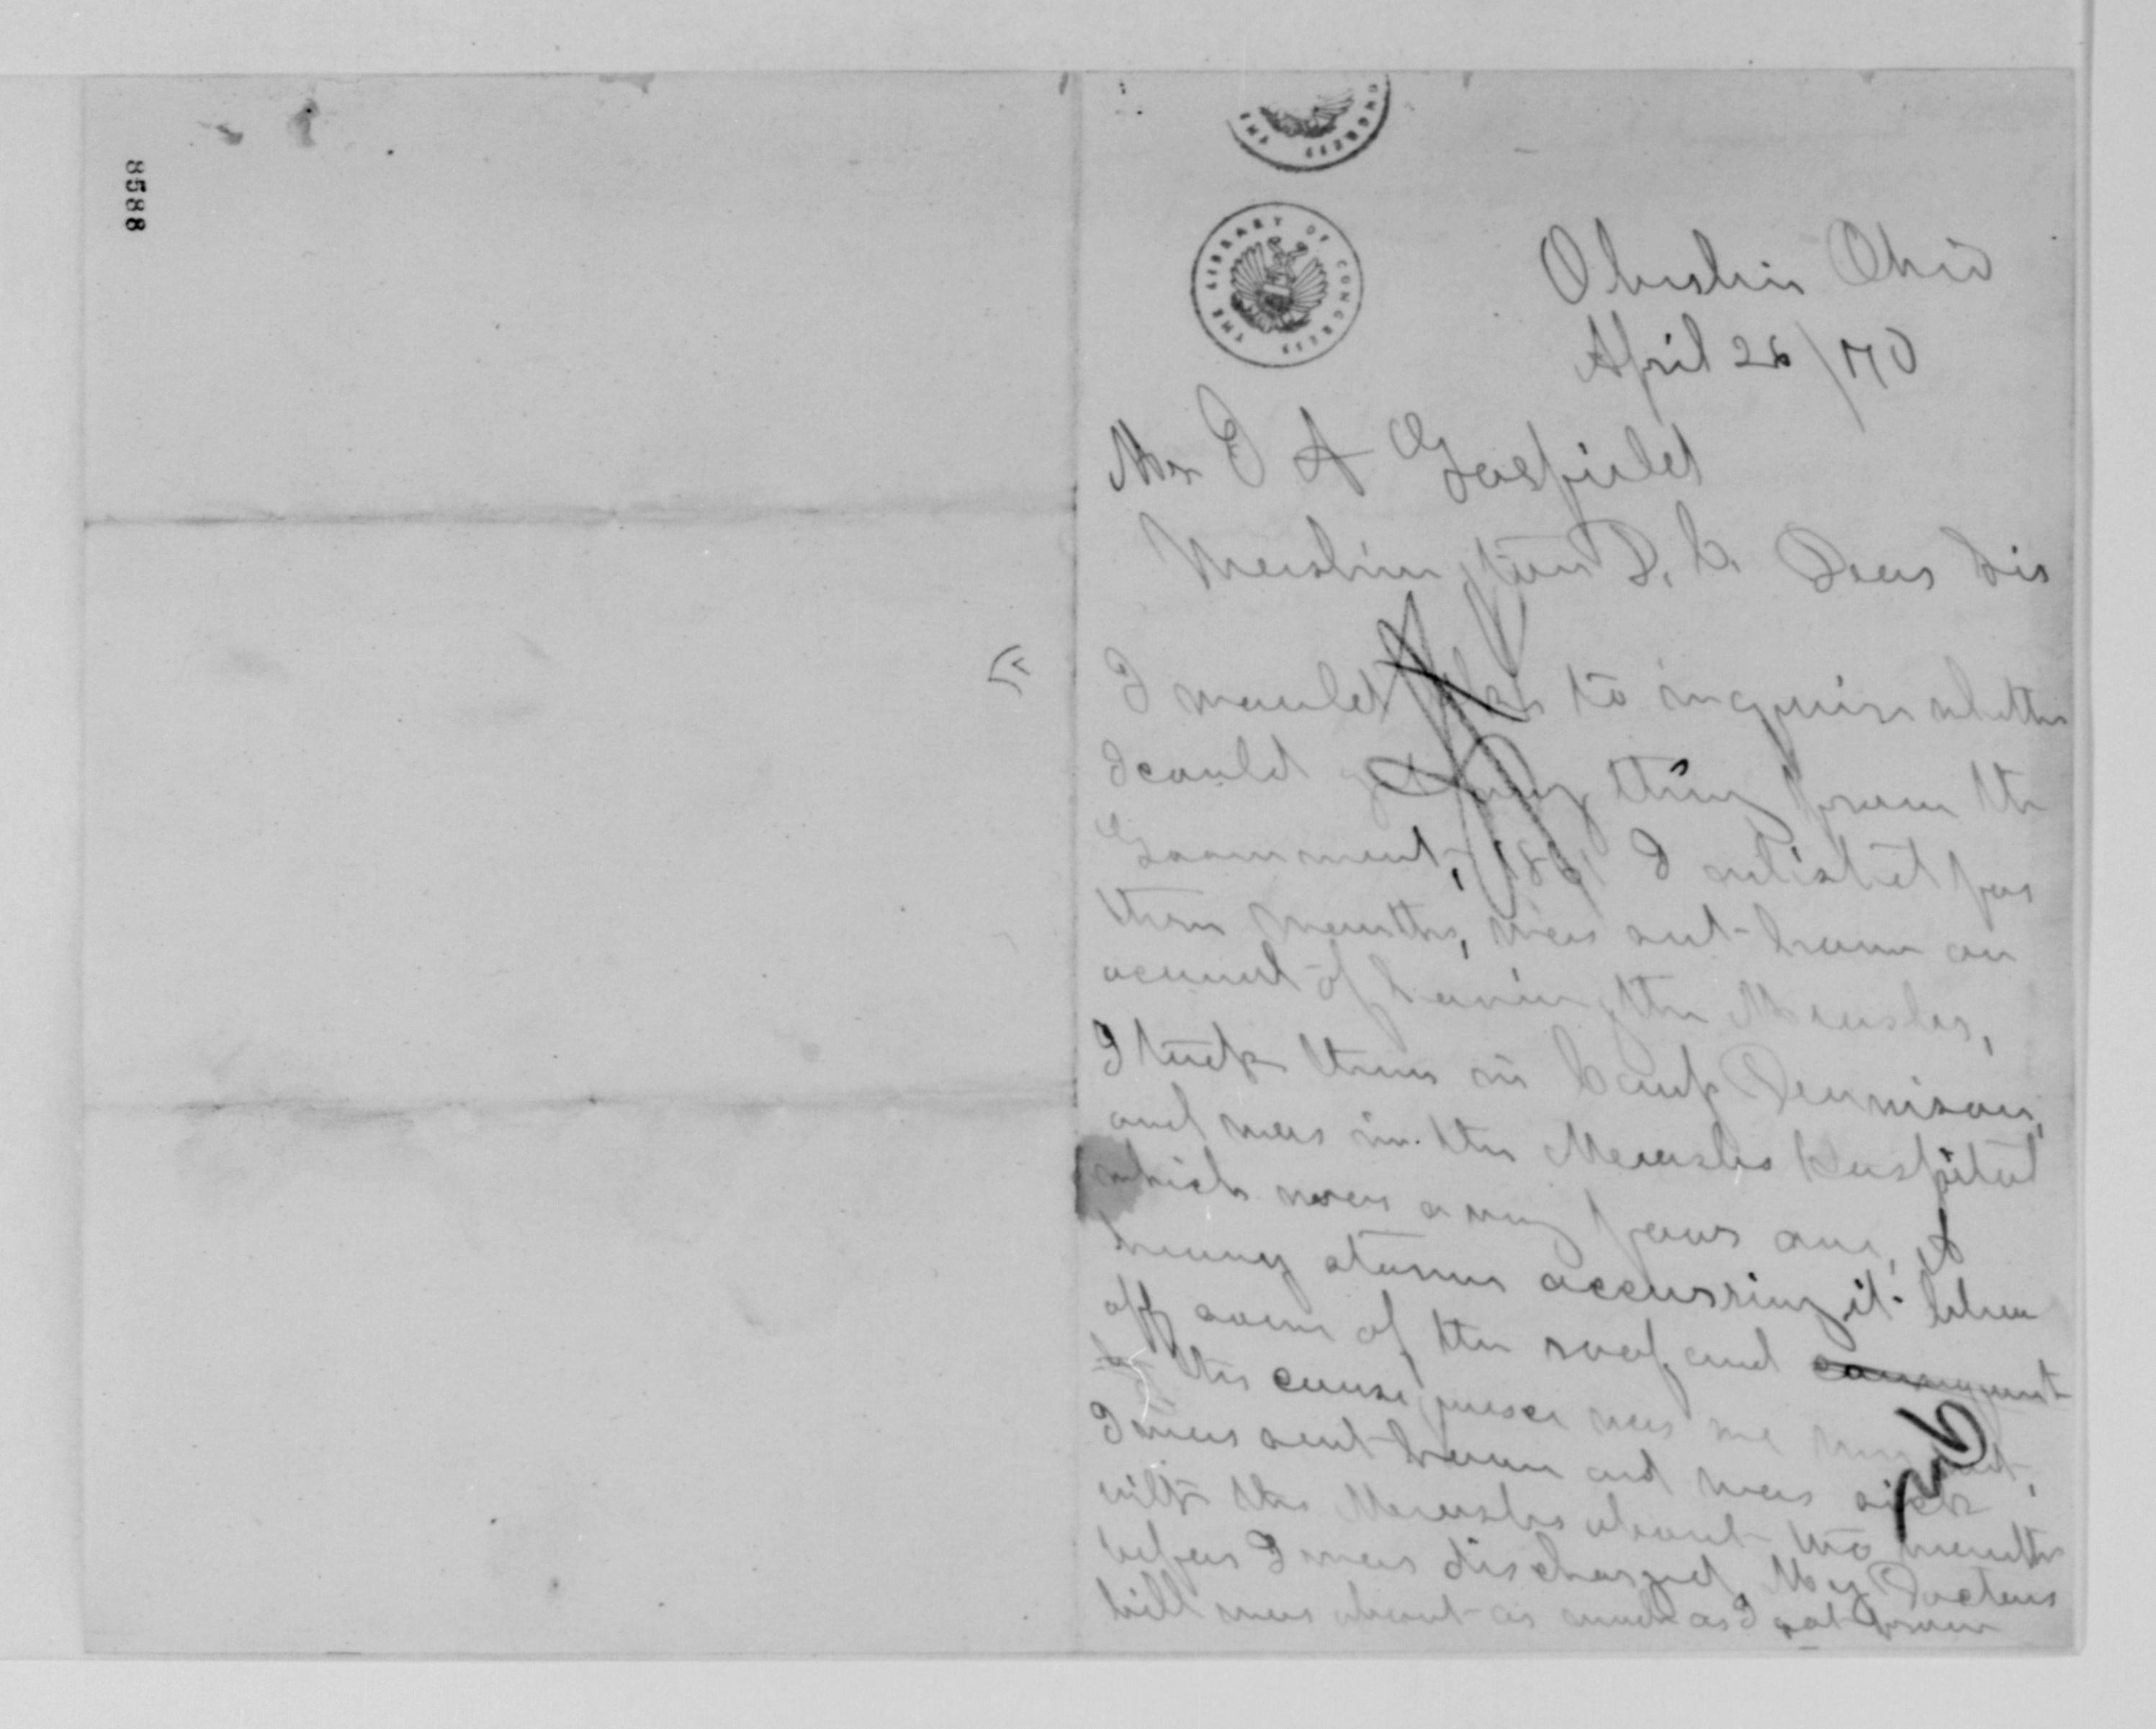 8588
THE LIBRARY OF CONGRESS
Oberlin Ohio
April 26/70
Mr J A Garfield
Washington D. C. Dear Sir
I would like to inquire whether
I could get any thing from the
Goverment, 1861 I enlisted for
three months, was sent home on
account of having the Measles,
I took them in Camp Dennison,
and was in the Measles Hospital
which was a very poor one, A
heavy storm occurring it blew
off some of the roof, and consequent
the consequence was we
I was sent home and was sick
with the Measles about two months
before I was discharged, My Doctors
bill was about as much as I got from